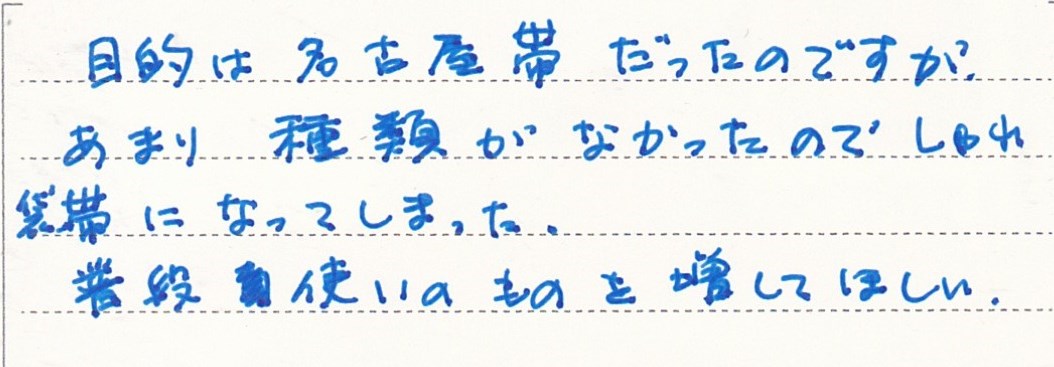 目的は 名古屋帯 だったのですが、
あまり 種類が なかったので しゃれ
袋帯に なってしまった.
普段使いの ものを 増してほしい.